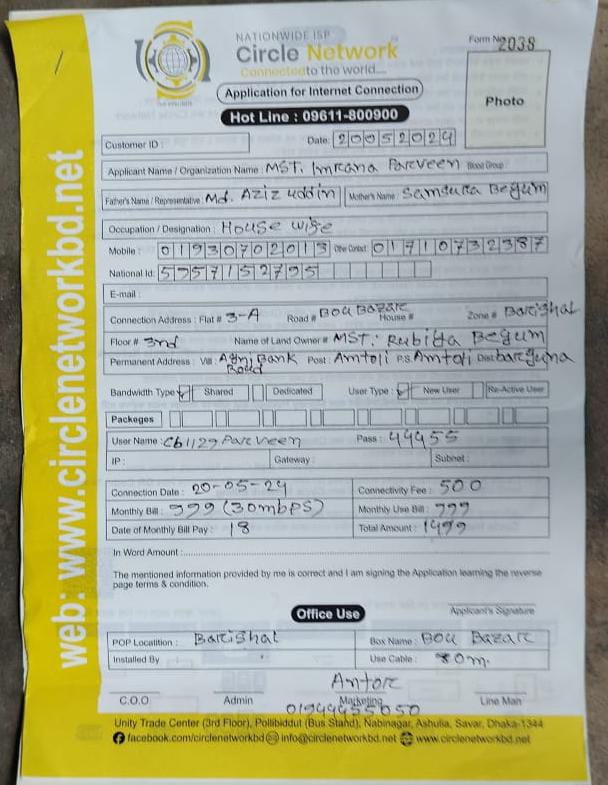 NATIONWIDE ISP
Circle Network
Connected to the world....
Form No 2038
Application for Internet Connection
Hot Line : 09611-800900
Photo
Customer ID :
Date: 20052024
Applicant Name / Organization Name : MST. Imrana Parveen Blood Group :
Father's Name / Representative : Md. Aziz uddin Mother's Name :
Begum
Occupation / Designation : House wife
Mobile : 01930702013 Other Contact: 01710732387
National Id: 5957152795
E-mail :
Connection Address : Flat # 3-A Road # BOU BAZAR House # Zone # Barishal
Floor # 3rd Name of Land Owner # MST. Begum
Permanent Address : Vill : Bank Road Post : Amtoli P.S Amtoli Dist barguna
Bandwidth Type Shared Dedicated User Type : New User Re-Active User
Packeges
User Name : Cb1129 Parveen Pass : 44455
IP : Gateway : Subnet :
Connection Date : 20-05-24 Connectivity Fee : 500
Monthly Bill : 999 (30mbps) Monthly Use Bill : 999
Date of Monthly Bill Pay : 18 Total Amount : 1499
In Word Amount :
The mentioned information provided by me is correct and I am signing the Application learning the reverse
page terms & condition.
Applicant's Signature
Office Use
POP Localition : Barishal Box Name : BOU Bazar
Installed By Use Cable : 80m.
Antor
C.O.O Admin Marketing Line Man
01944455050
Unity Trade Center (3rd Floor), Pollibiddut (Bus Stand), Nabinagar, Ashulia, Savar, Dhaka-1344
facebook.com/circlenetworkbd info@circlenetworkbd.net www.circlenetworkbd.net
web: www.circlenetworkbd.net